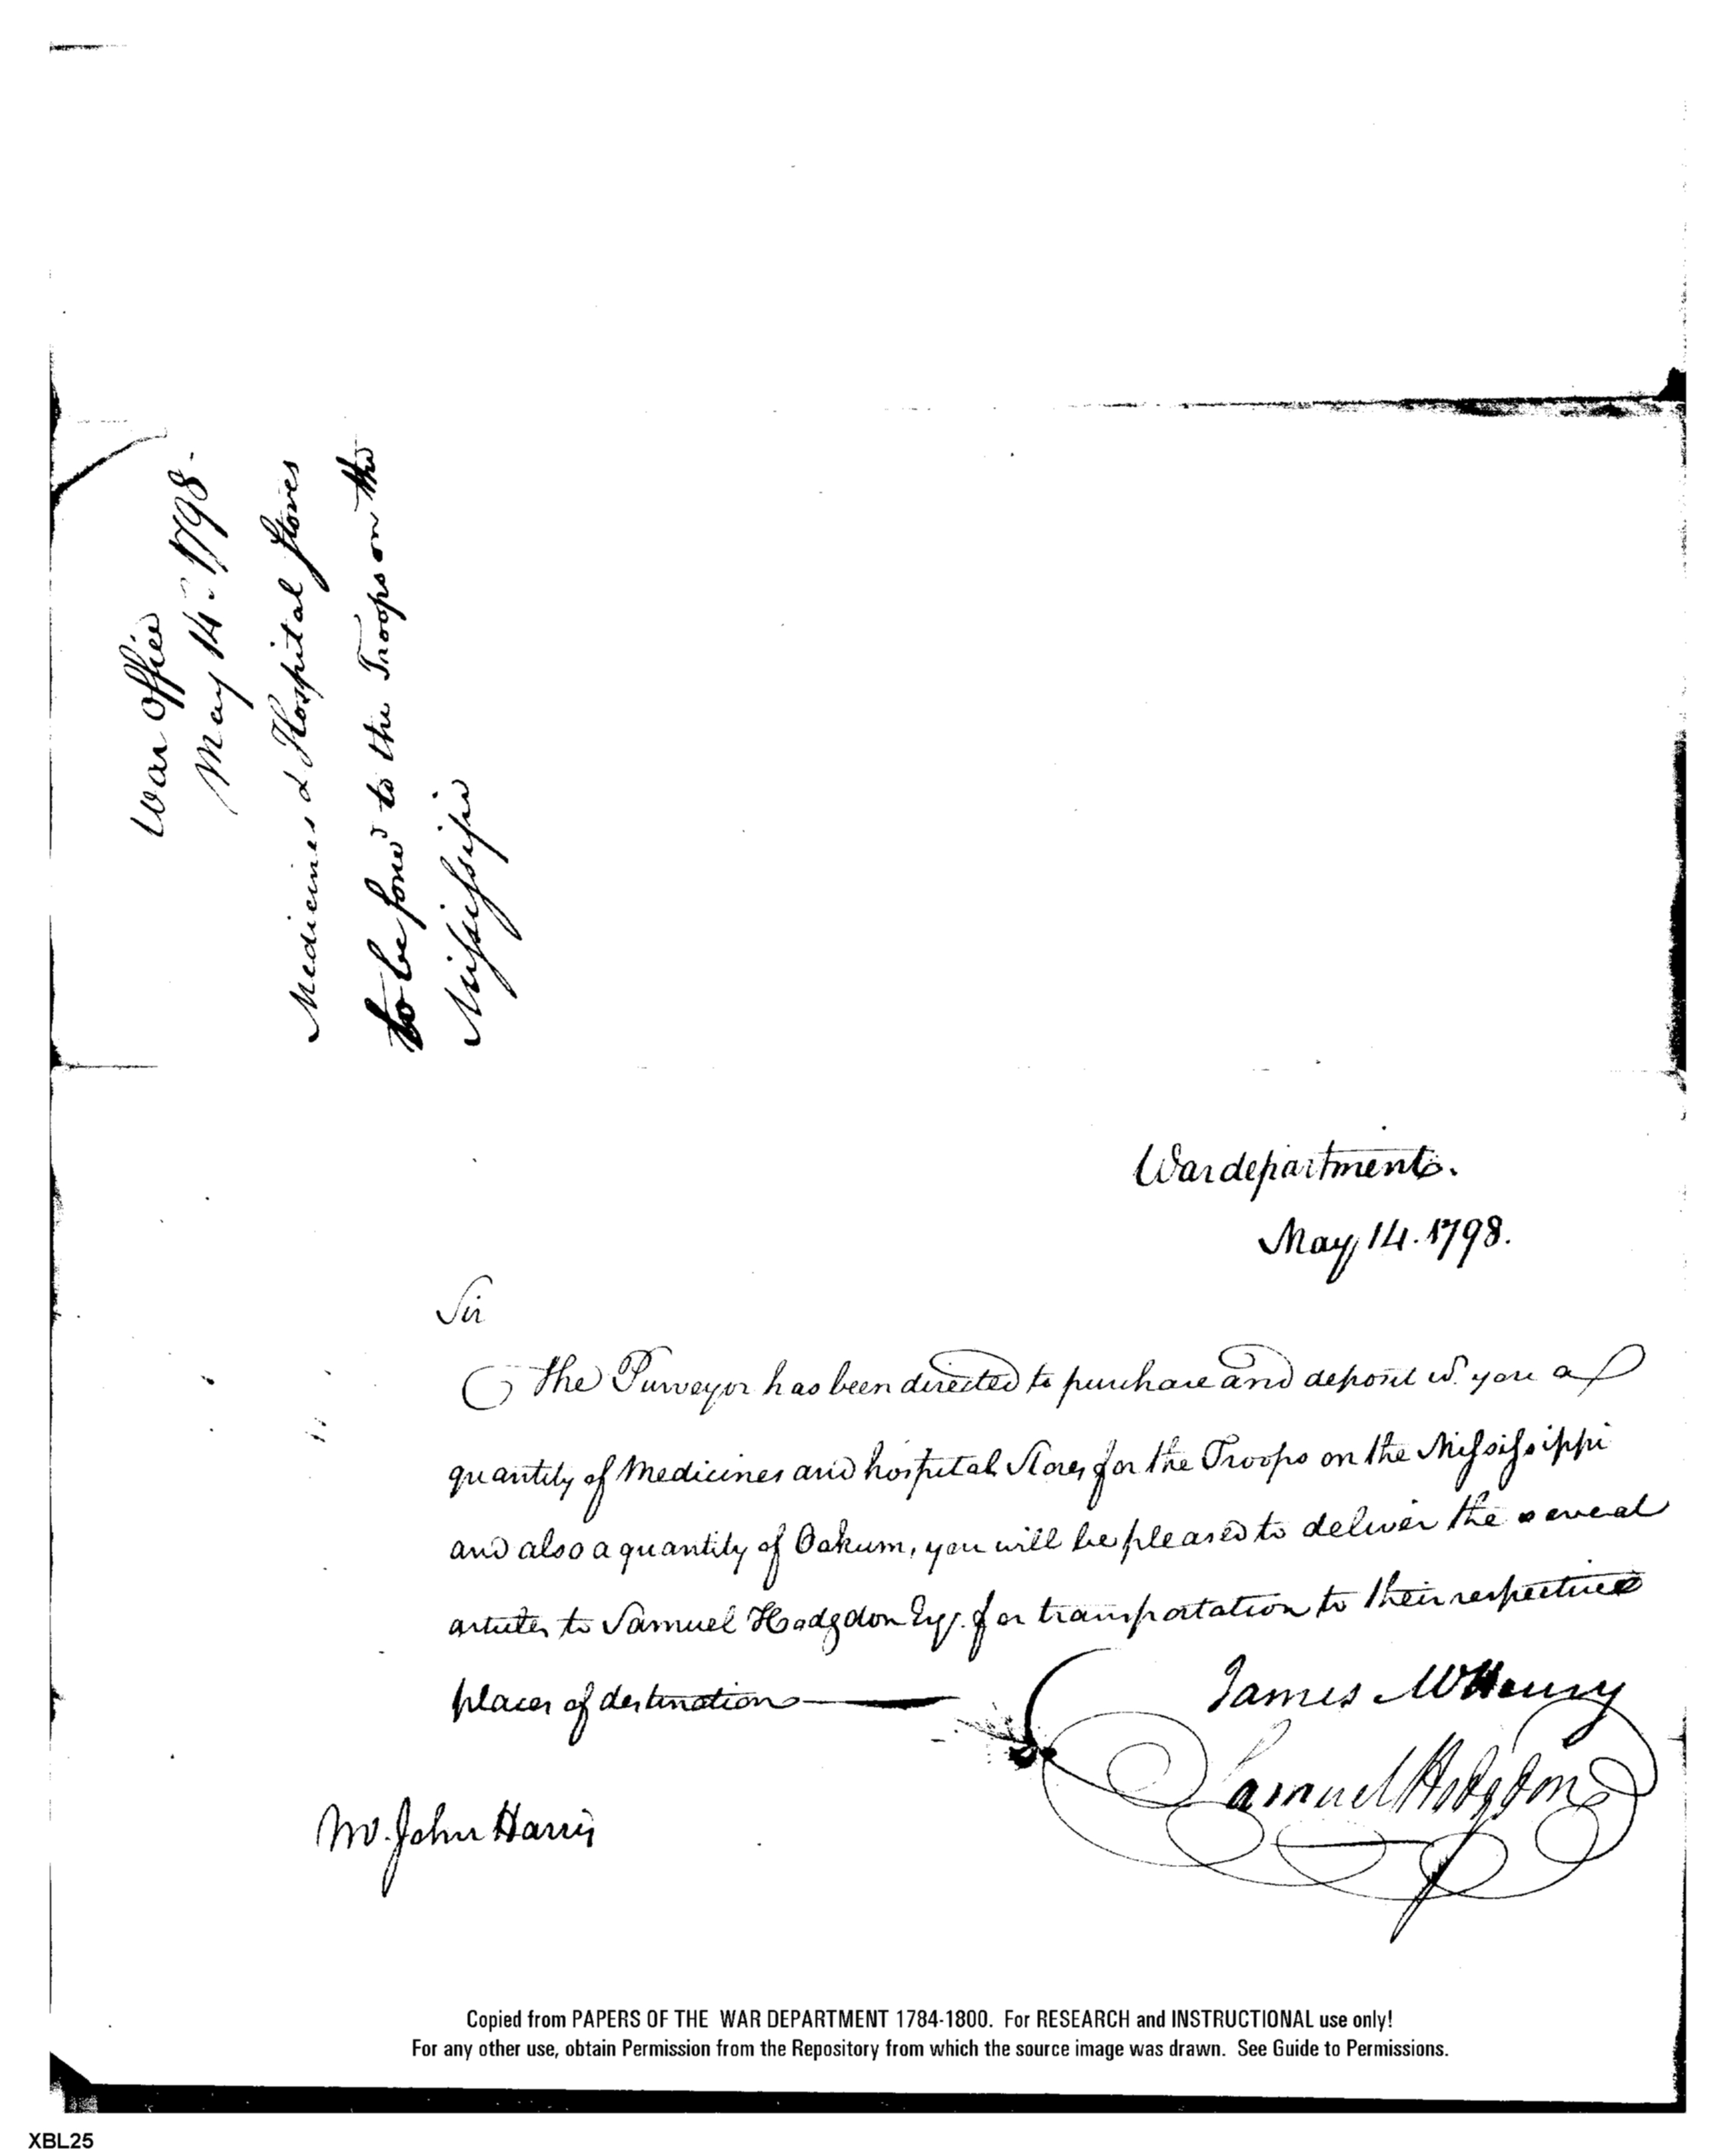 War Office
May 14. 1798.
Medicines & Hospital Stores
to be forw'd to the Troops on the
Missisipi
War department.
May 14. 1798.
Sir
The Purveyor has been directed to purchase and deposit w. you a
quantity of Medicines and hospital Stores for the Troops on the Mississippi
and also a quantity of Oakum, you will be pleased to deliver the several
articles to Samuel Hodgdon Esqr. for transportation to their respective
places of destination
James McHenry
Samuel Hodgdon
Mr. John Harris
Copied from PAPERS OF THE WAR DEPARTMENT 1784-1800. For RESEARCH and INSTRUCTIONAL use only!
For any other use, obtain Permission from the Repository from which the source image was drawn. See Guide to Permissions.
XBL25